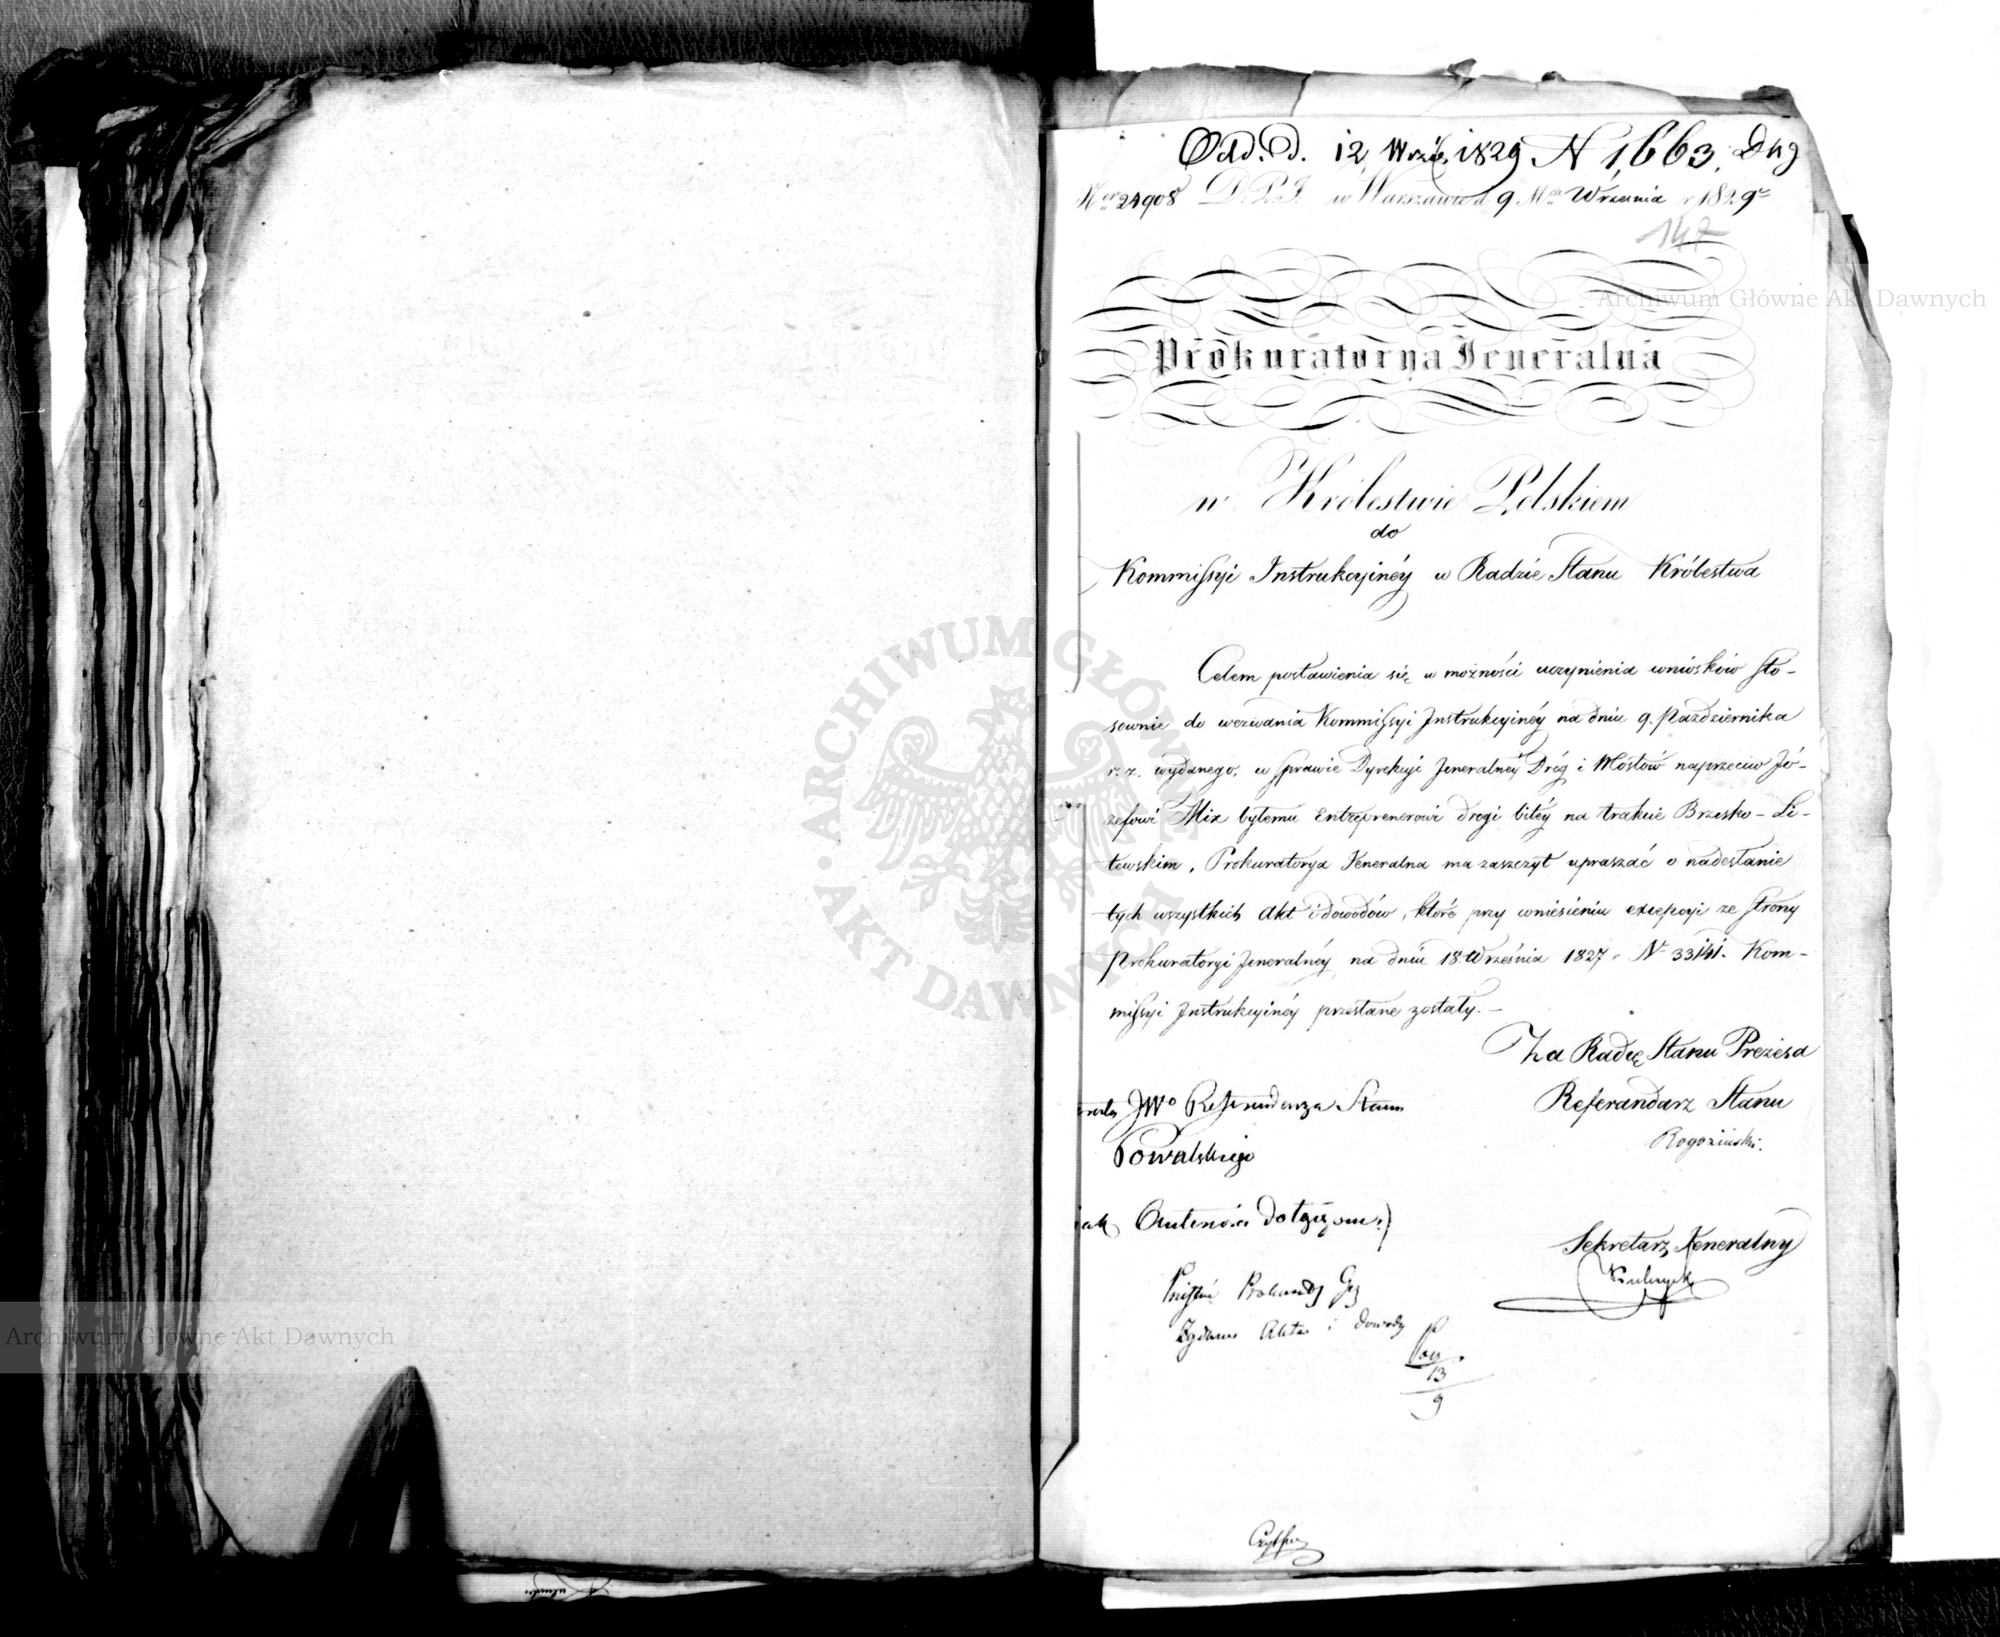 Odd. d. 12 Wrześ. 1829 N 1,663.
Ner 24908 D.P.J. w Warszawie d. 9 Mca Września r 1829
147
Archiwum Główne Akt Dawnych
Prokuratorya Jeneralna
w Królestwie Polskiem
do
Kommissyi Instrukcyinéy w Radzie Stanu Królestwa
Celem postawienia się w możności uczynienia wniosków sto-
sownie do wezwania Kommissyi Instrukcyinéy na dniu 9. Października
r. z. wydanego, w sprawie Dyrekcyi Jeneralnéy Dróg i Mostów naprzeciw Jó-
zefowi Mix byłemu Entreprenerowi drogi bitéy na trakcie Brzesko-Li-
tewskim, Prokuratorya Jeneralna ma zaszczyt upraszać o nadesłanie
tych wszystkich Akt i dowodów, które przy wniesieniu excepcyi ze strony
Prokuratoryi Jeneralnéy na dniu 18. Września 1827. Nr 33141. Kom-
missyi Instrukcyinéy przesłane zostały. —
Za Radcę Stanu Prezesa
JWo Referendarza Stanu
Referendarz Stanu
Kowalskiego
Rogoziński.
Sekretarz Jeneralny
Akta i dowody
13
9
ARCHIWUM GŁÓWNE · AKT DAWNYCH ·
Archiwum Główne Akt Dawnych